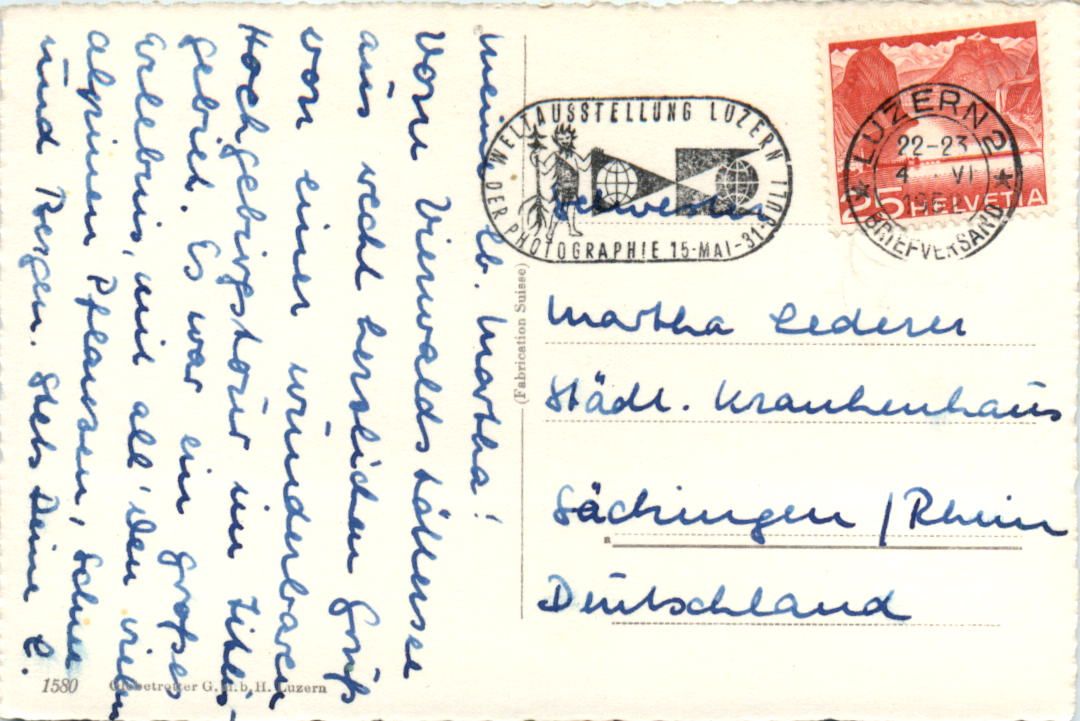 Meine lb. Martha!
Vom Vierwaldstättersee
aus recht herzlichen Gruß
von einer wunderbaren
Hochgebirgstour im Titlis-
gebiet. Es war ein großes
Erlebnis, mit all' den vielen
alpinen Pflanzen, Schnee
und Regen. Stets Deine E.
1580 Globetrotter G.m.b.H. Luzern
(Fabrication Suisse)
WELTAUSSTELLUNG LUZERN
DER PHOTOGRAPHIE 15-MAI-31-JULI
LUZERN 2
22-23
4 VI
1952
BRIEFVERSAND
25 HELVETIA
Schwester
Martha Lederer
Städt. Krankenhaus
Säckingen / Rhein
Deutschland